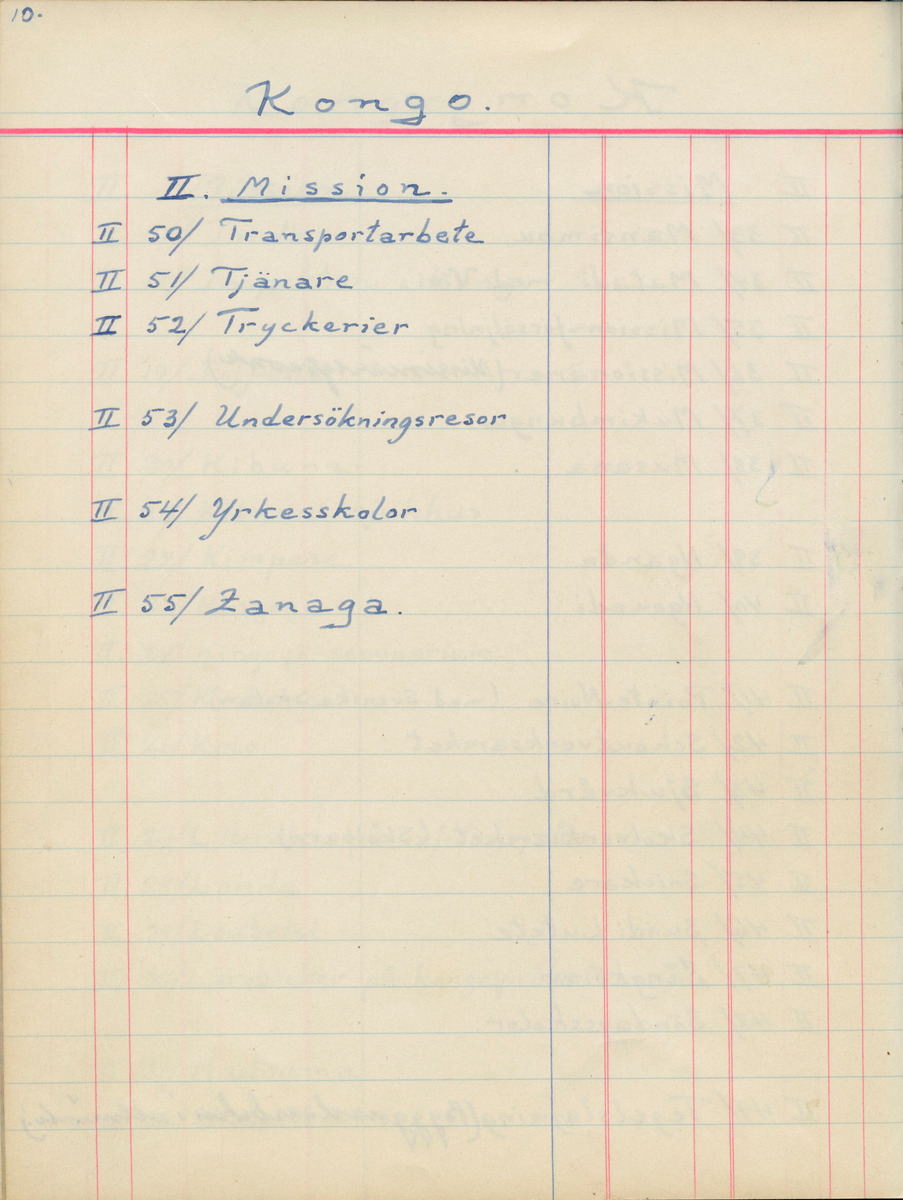 10.
Kongo.
II. Mission.
II 50/ Transportarbete
II 51/ Tjänare
II 52/ Tryckerier
II 53/ Undersökningsresor
II 54/ Yrkesskolor
II 55/ Zanaga.